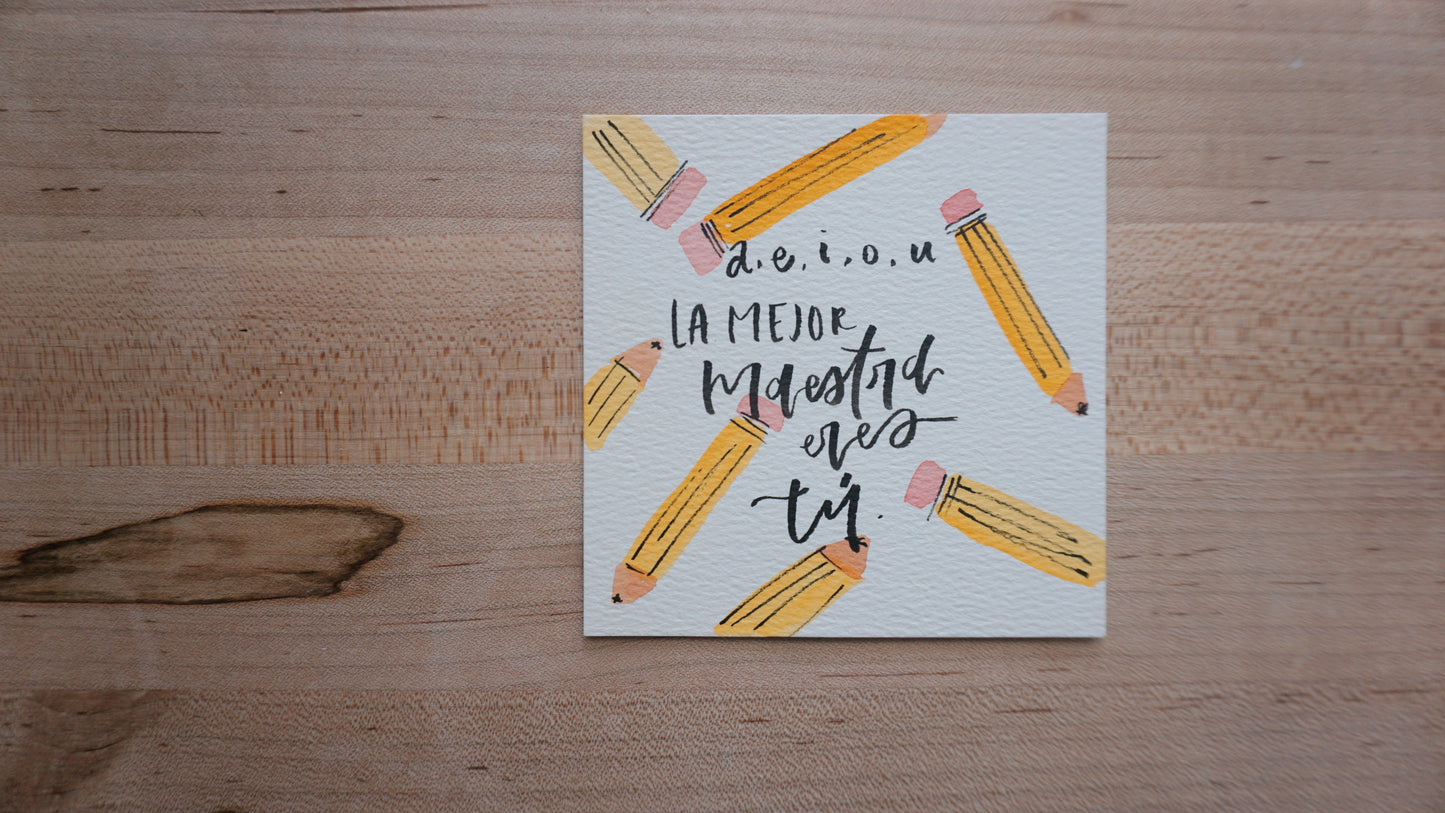 a, e, i, o, u
LA MEJOR
maestra
eres
tú.